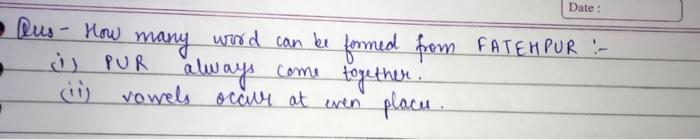 Date :
Qus - How many word can be formed from FATEHPUR :-
(i) PUR always come together.
(ii) vowels occur at even place.